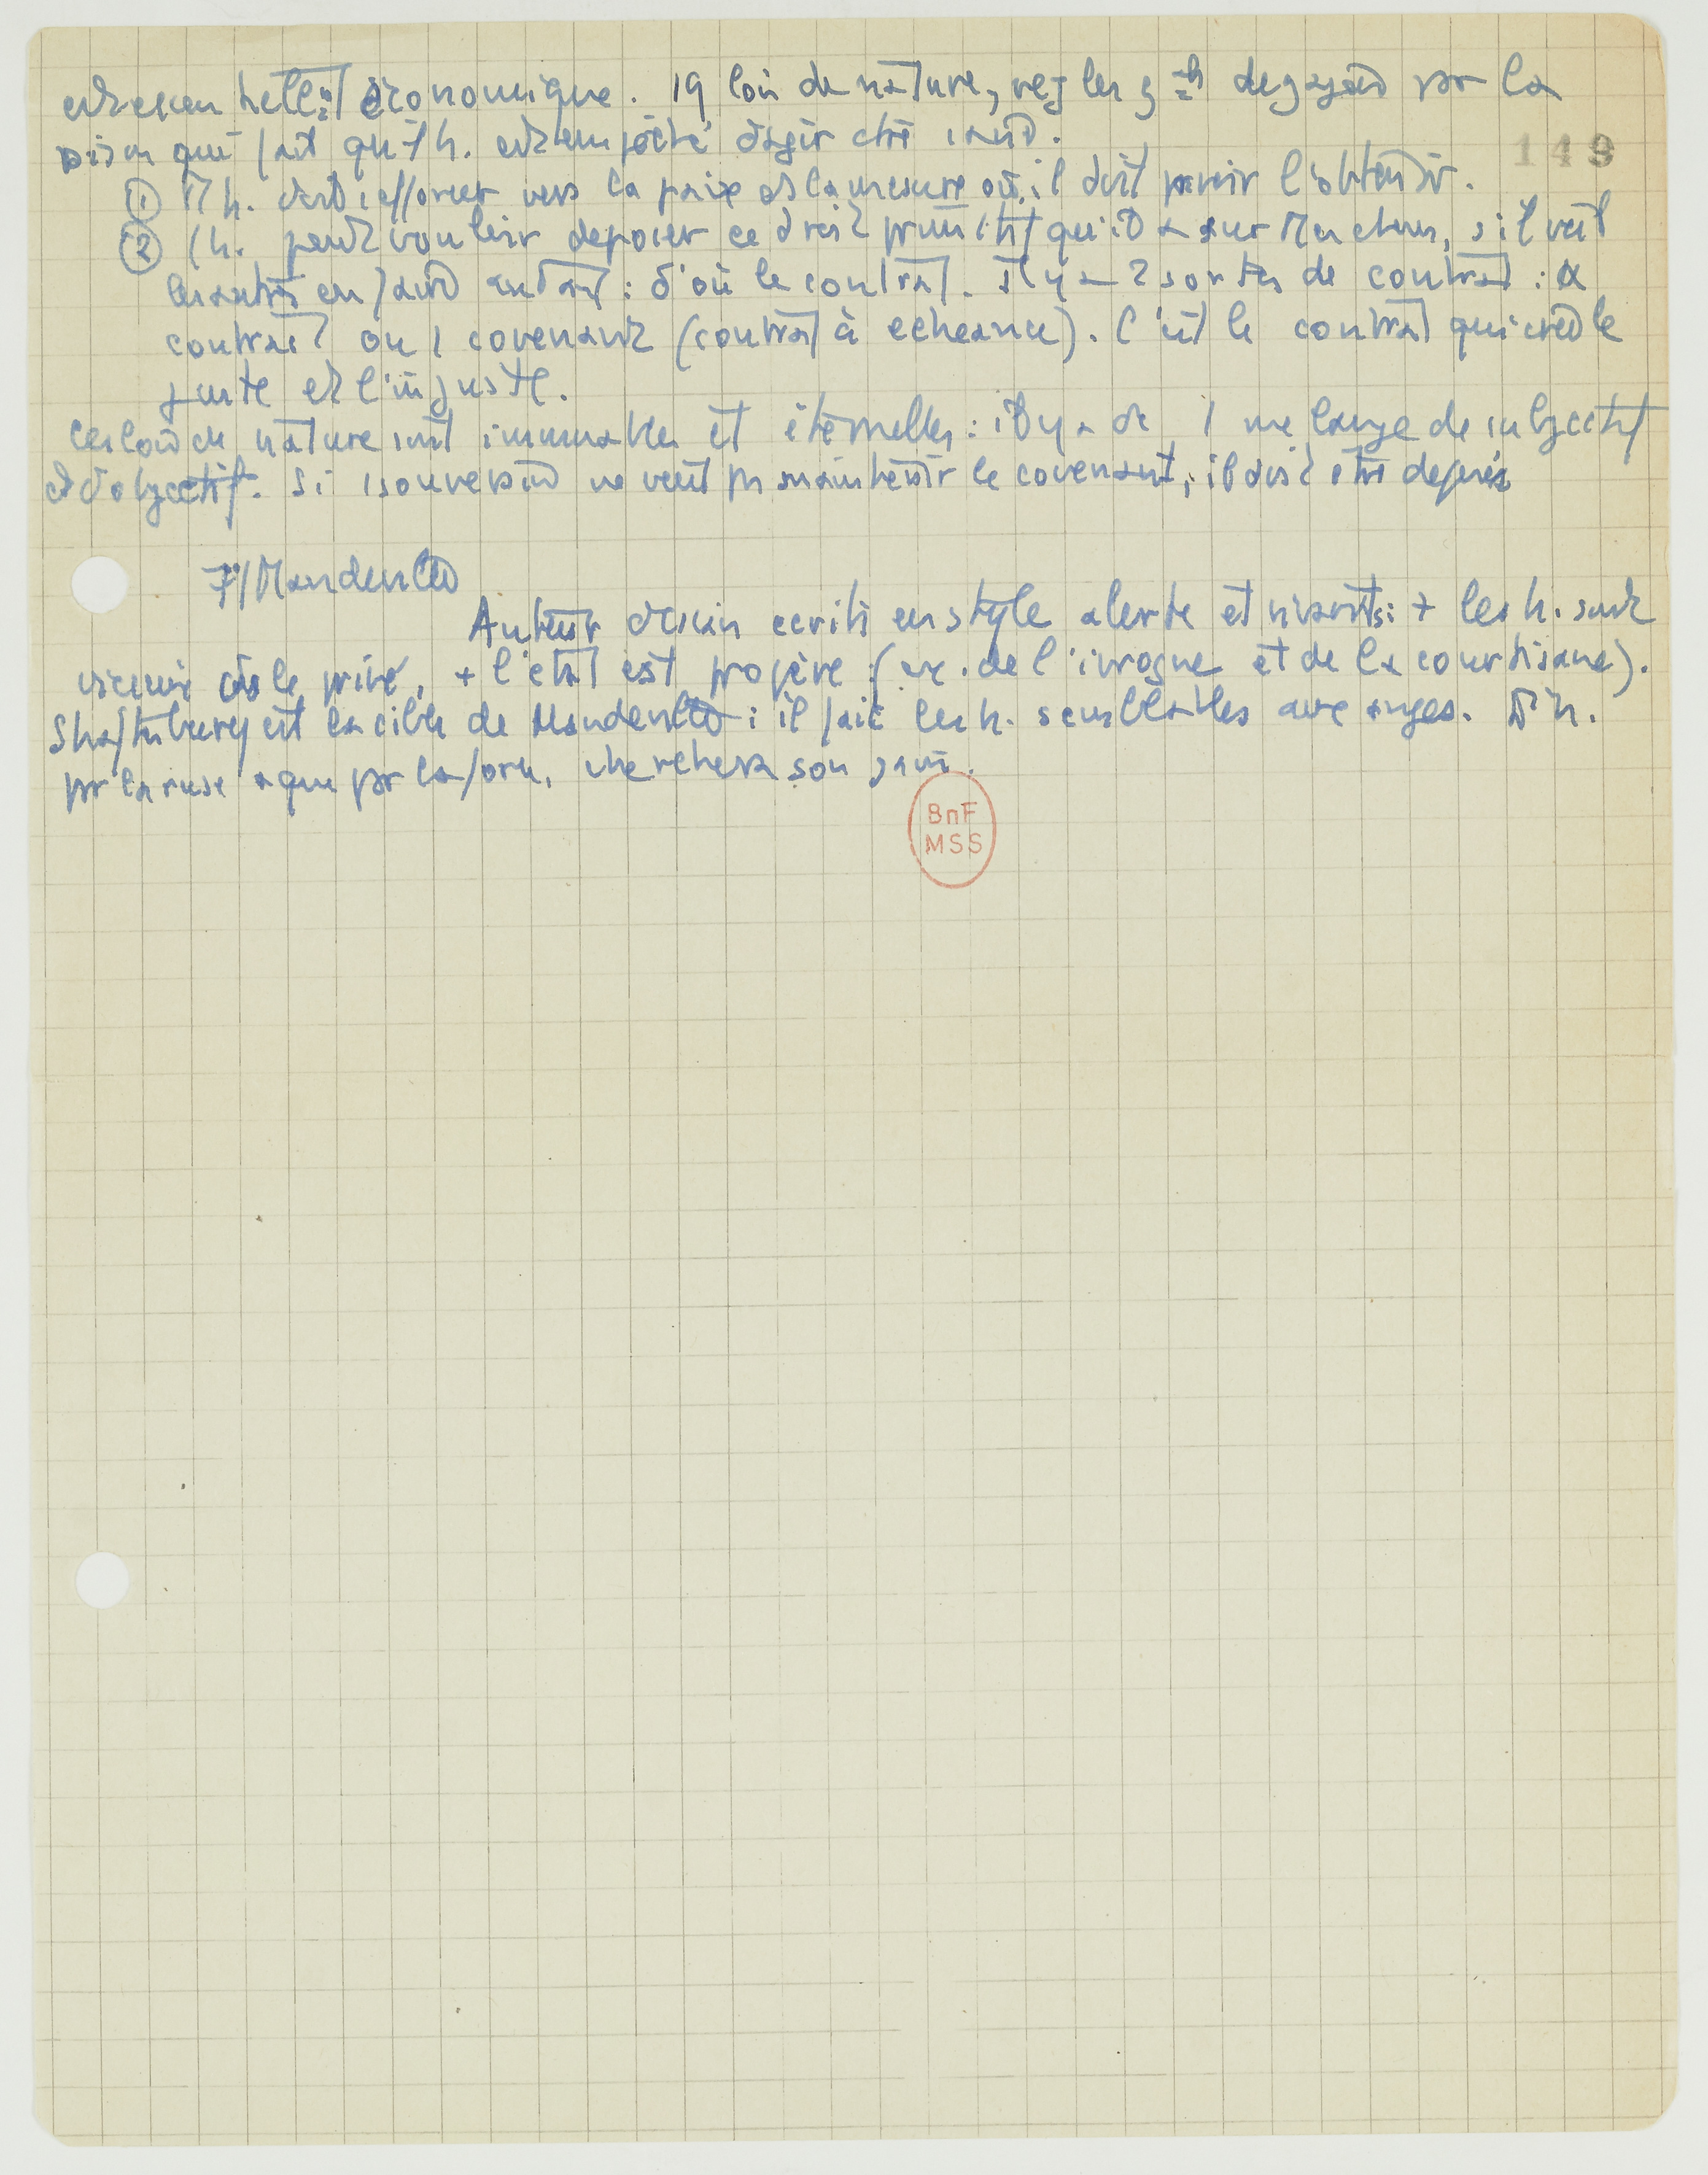 économique. 19 lois de nature, règles dégagées par la
qui fait qu'1 h. est empêché d'agir
149
① Tt h. doit s'efforcer vers la paix ds la mesure où, il doit pvoir l'obtenir.
② 1 h. peut vouloir déposer ce droit primitif qu'il a sur ttes choses, s'il voit
les autres en faire autant : d'où le contrat. Il y a 2 sortes de contrat : le
contrat ou 1 covenant (contrat à echeance). C'est le contrat qui crée le
juste et l'injuste.
Les lois de nature sont immuables et éternelles : il y a dc 1 mélange de subjectif
et d'objectif. Si 1 souverain ne veut pas maintenir le covenant, il doit être déposé
7/ Mandeville
Auteur d'essais écrits en style alerte et : + les h. sont
vicieux ds le privé, + l'état est prospère (ex. de l'ivrogne et de la courtisane).
Shaftesbury est la cible de Mandeville : il fait les h. semblables aux anges. Tt h.
par la ruse que par la force, cherchera son gain.
BnF
MSS